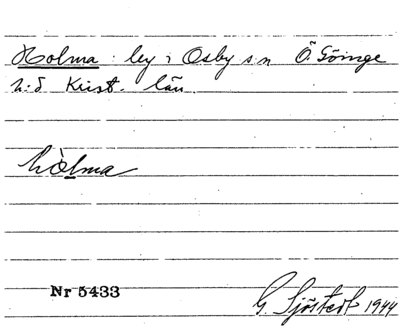 Holma: ley i Osby sn Ö. Göinge
h:d Krist. län.
hòlma
Nr 5433
G. Sjöstedt 1944